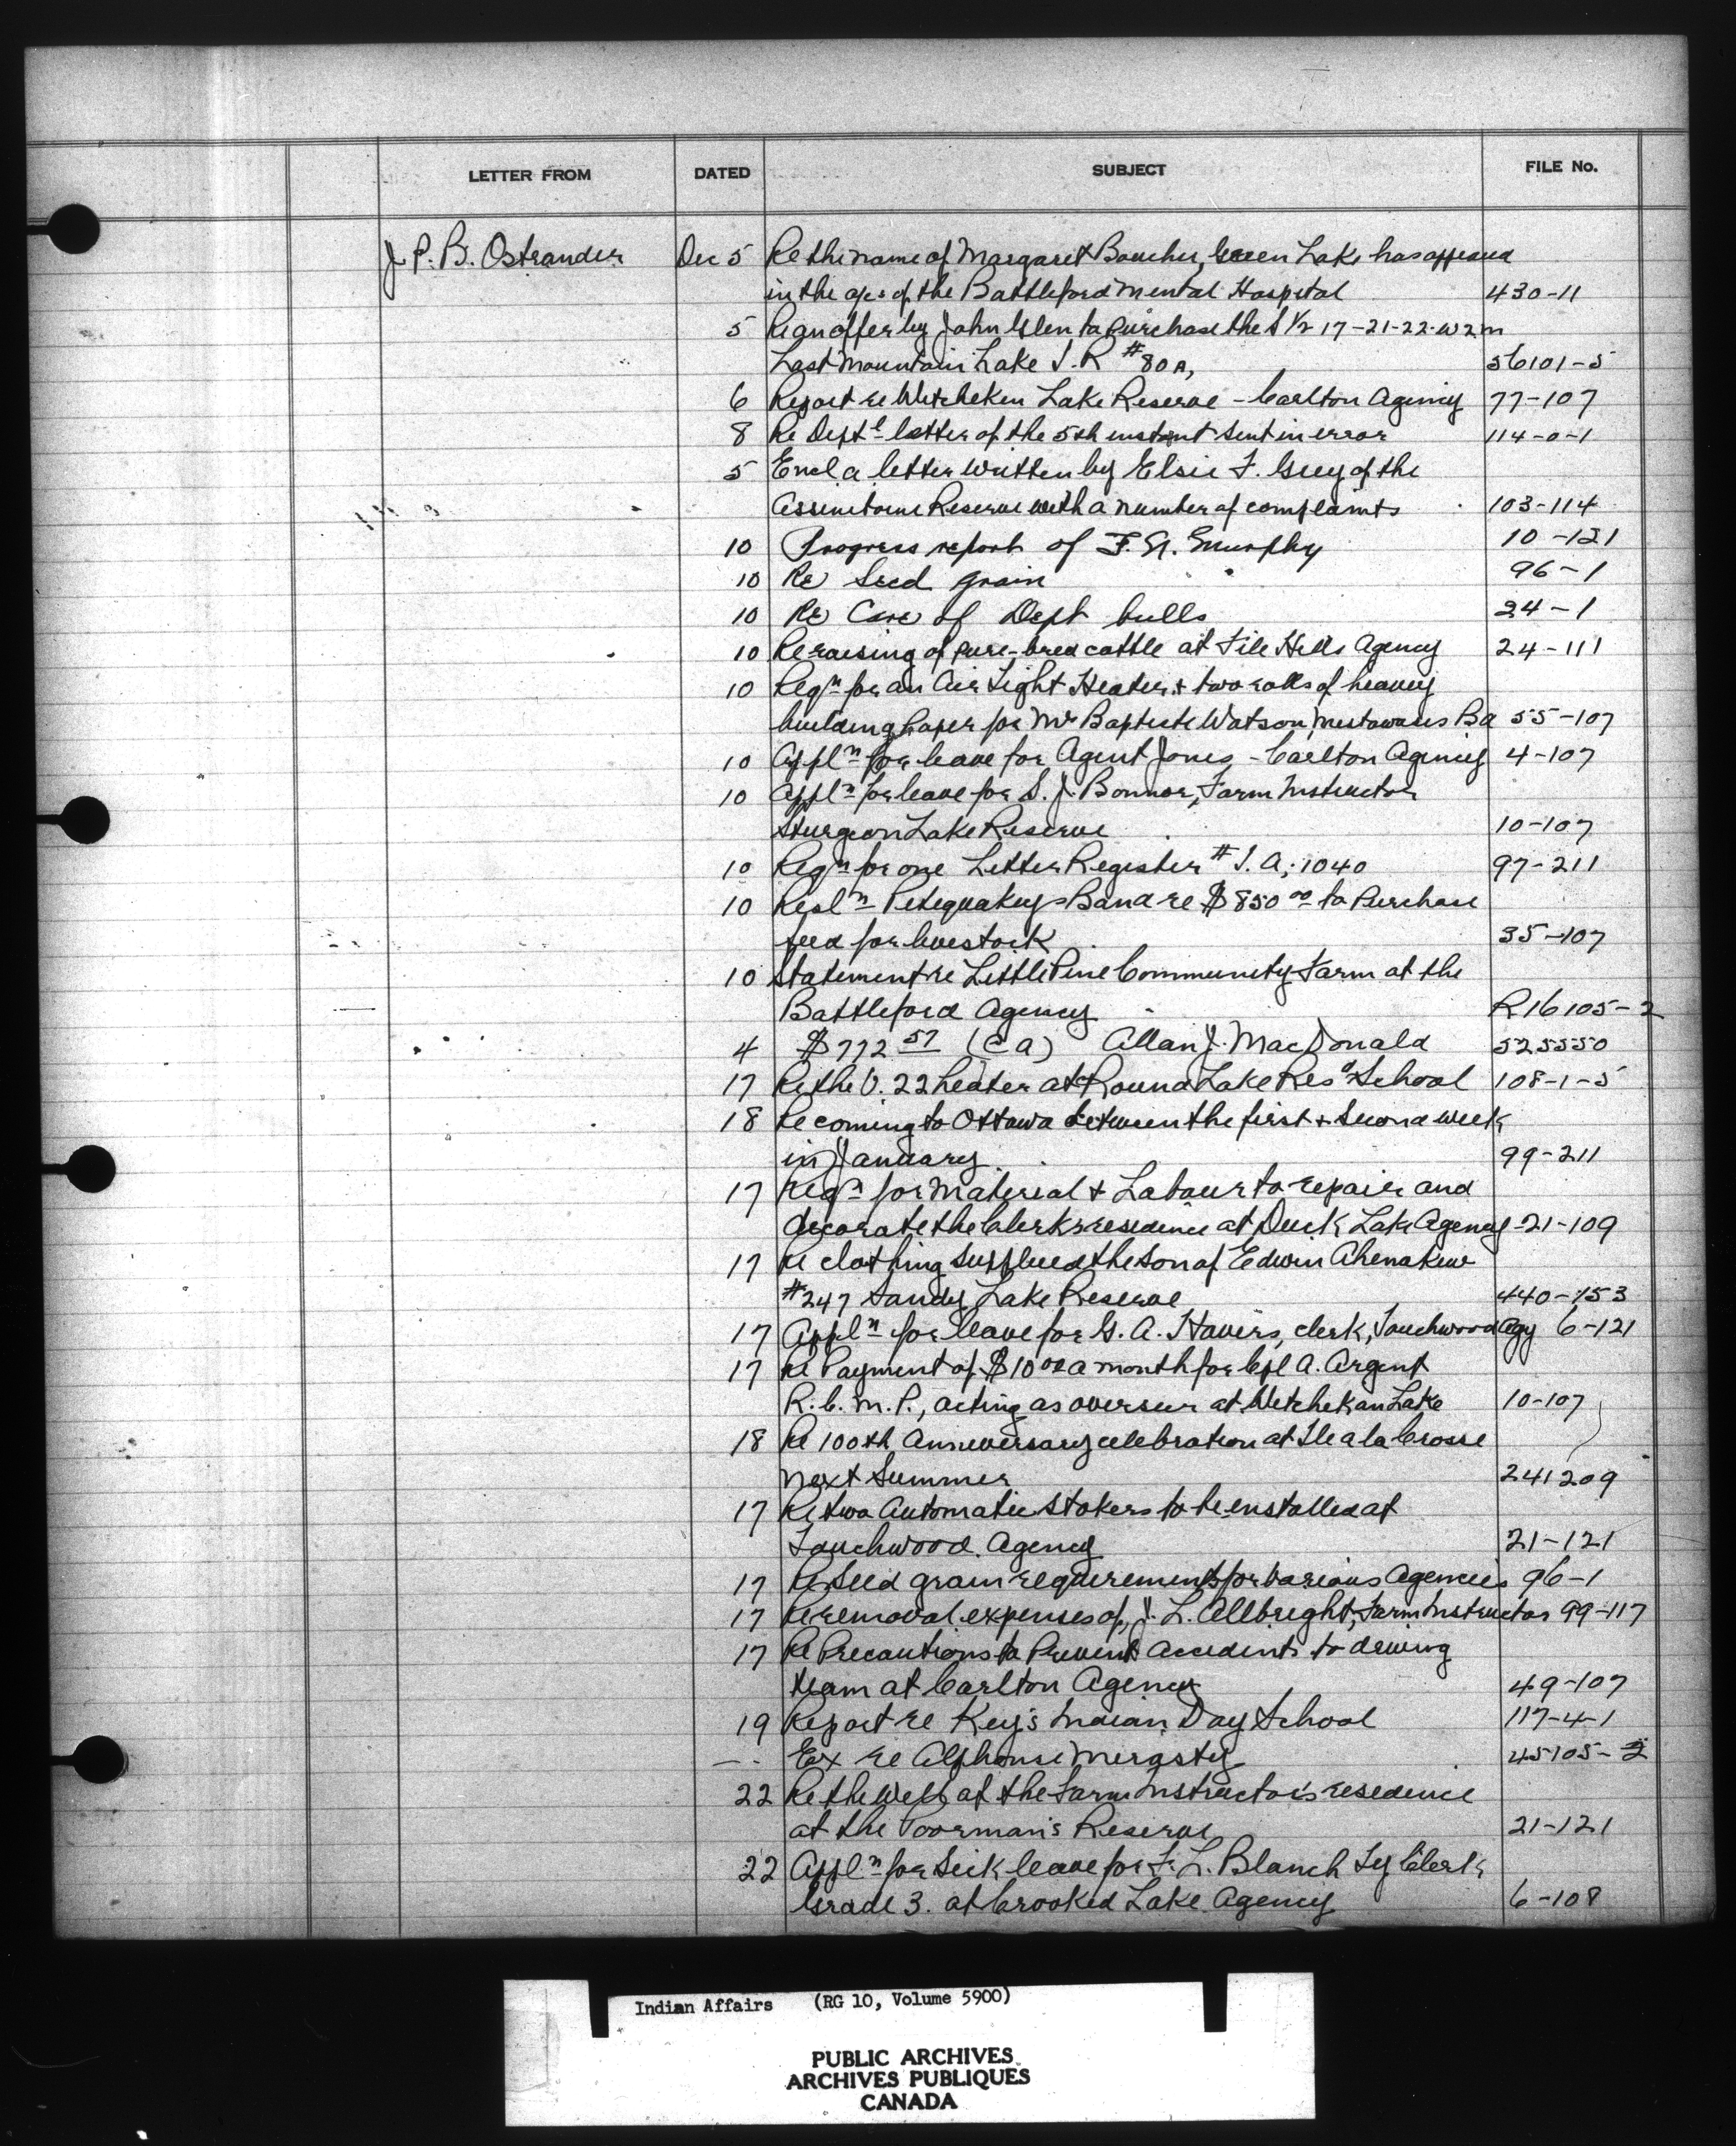 LETTER FROM DATED SUBJECT FILE No.
J. P. B. Ostrander Dec 5 Re the name of Margaret Boucher, Green Lake has appeared
in the a/cs of the Battleford Mental Hospital 430-11
5 Re an offer by John Glen to purchase the S 1/2 17-21-22-W2m
Last Mountain Lake I.R #80A, 56101-5
6 Report re Witchekan Lake Reserve - Carlton Agency 77-107
8 Re Deptl letter of the 5th instant sent in error 114-0-1
5 Encl a letter written by Elsie F. Grey of the
Assiniboine Reserve with a number of complaints 103-114
10 Progress report of F. G. Murphy 10-121
10 Re Seed grain 96-1
10 Re Care of Dept bulls 24-1
10 Re raising of pure-bred cattle at File Hills Agency 24-111
10 Reqn for an Air Tight Heater & two rolls of heavy
building paper for Mr Baptiste Watson, Mistawasis Bd 55-107
10 Appln for leave for Agent Jones - Carlton Agency 4-107
10 Appln for leave for S. J. Bonnor, Farm Instructor
Sturgeon Lake Reserve 10-107
10 Reqn for one Letter Register # I.A. 1040 97-211
10 Resln Petequakey's Band re $850 00 to purchase
feed for livestock 35-107
10 Statement re Little Pine Community Farm at the
Battleford Agency R16105-2
4 $772 57 (CA) Allan J. MacDonald 525550
17 Re the V. 22 heater at Round Lake Resd School 108-1-5
18 Re coming to Ottawa between the first & second week
in January 99-211
17 Reqn for Material & Labour to repair and
decorate the Clerk's residence at Duck Lake Agency 21-109
17 Re clothing supplied the son of Edwin Ahenakew
#247 Sandy Lake Reserve 440-153
17 Appln for leave for G. A. Havers, clerk, Touchwood Agy 6-121
17 Re Payment of $10 00 a month for Cpl A. Argent
R.C.M.P., acting as overseer at Witchekan Lake 10-107
18 Re 100th Anniversary celebration at Ile a la Crosse
next Summer 241209
17 Re two Automatic Stokers to be installed at
Touchwood Agency 21-121
17 Re Seed grain requirements for various Agencies 96-1
17 Re removal expenses of J. L. Allbright, Farm Instructor 99-117
17 Re Precautions to Prevent accidents to driving
team at Carlton Agency 49-107
19 Report re Key's Indian Day School 117-4-1
- Ex re Alphonse Merasty 45105-2
22 Re the Well at the Farm Instructor's residence
at the Poorman's Reserve 21-121
22 Appln for Sick leave for F. L. Blanch Ty Clerk
Grade 3. at Crooked Lake Agency 6-108
Indian Affairs (RG 10, Volume 5900)
PUBLIC ARCHIVES
ARCHIVES PUBLIQUES
CANADA